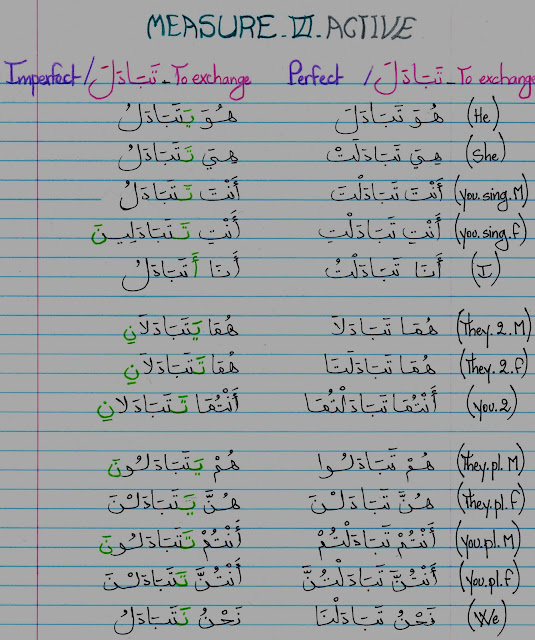 MEASURE.VI.ACTIVE
Imperfect / تَبَادَلَ - To exchange Perfect / تَبَادَلَ - To exchange
هُوَ يَتَبَادَلُ هُوَ تَبَادَلَ (He)
هِيَ تَتَبَادَلُ هِيَ تَبَادَلَتْ (She)
أَنْتَ تَتَبَادَلُ أَنْتَ تَبَادَلْتَ (you.sing.M)
أَنْتِ تَتَبَادَلِينَ أَنْتِ تَبَادَلْتِ (you.sing.f)
أَنَا أَتَبَادَلُ أَنَا تَبَادَلْتُ (I)
هُمَا يَتَبَادَلَانِ هُمَا تَبَادَلَا (They.2.M)
هُمَا تَتَبَادَلَانِ هُمَا تَبَادَلَتَا (They.2.f)
أَنْتُمَا تَتَبَادَلَانِ أَنْتُمَا تَبَادَلْتُمَا (you.2)
هُمْ يَتَبَادَلُونَ هُمْ تَبَادَلُوا (They.pl.M)
هُنَّ يَتَبَادَلْنَ هُنَّ تَبَادَلْنَ (They.pl.f)
أَنْتُمْ تَتَبَادَلُونَ أَنْتُمْ تَبَادَلْتُمْ (you.pl.M)
أَنْتُنَّ تَتَبَادَلْنَ أَنْتُنَّ تَبَادَلْتُنَّ (you.pl.f)
نَحْنُ نَتَبَادَلُ نَحْنُ تَبَادَلْنَا (We)